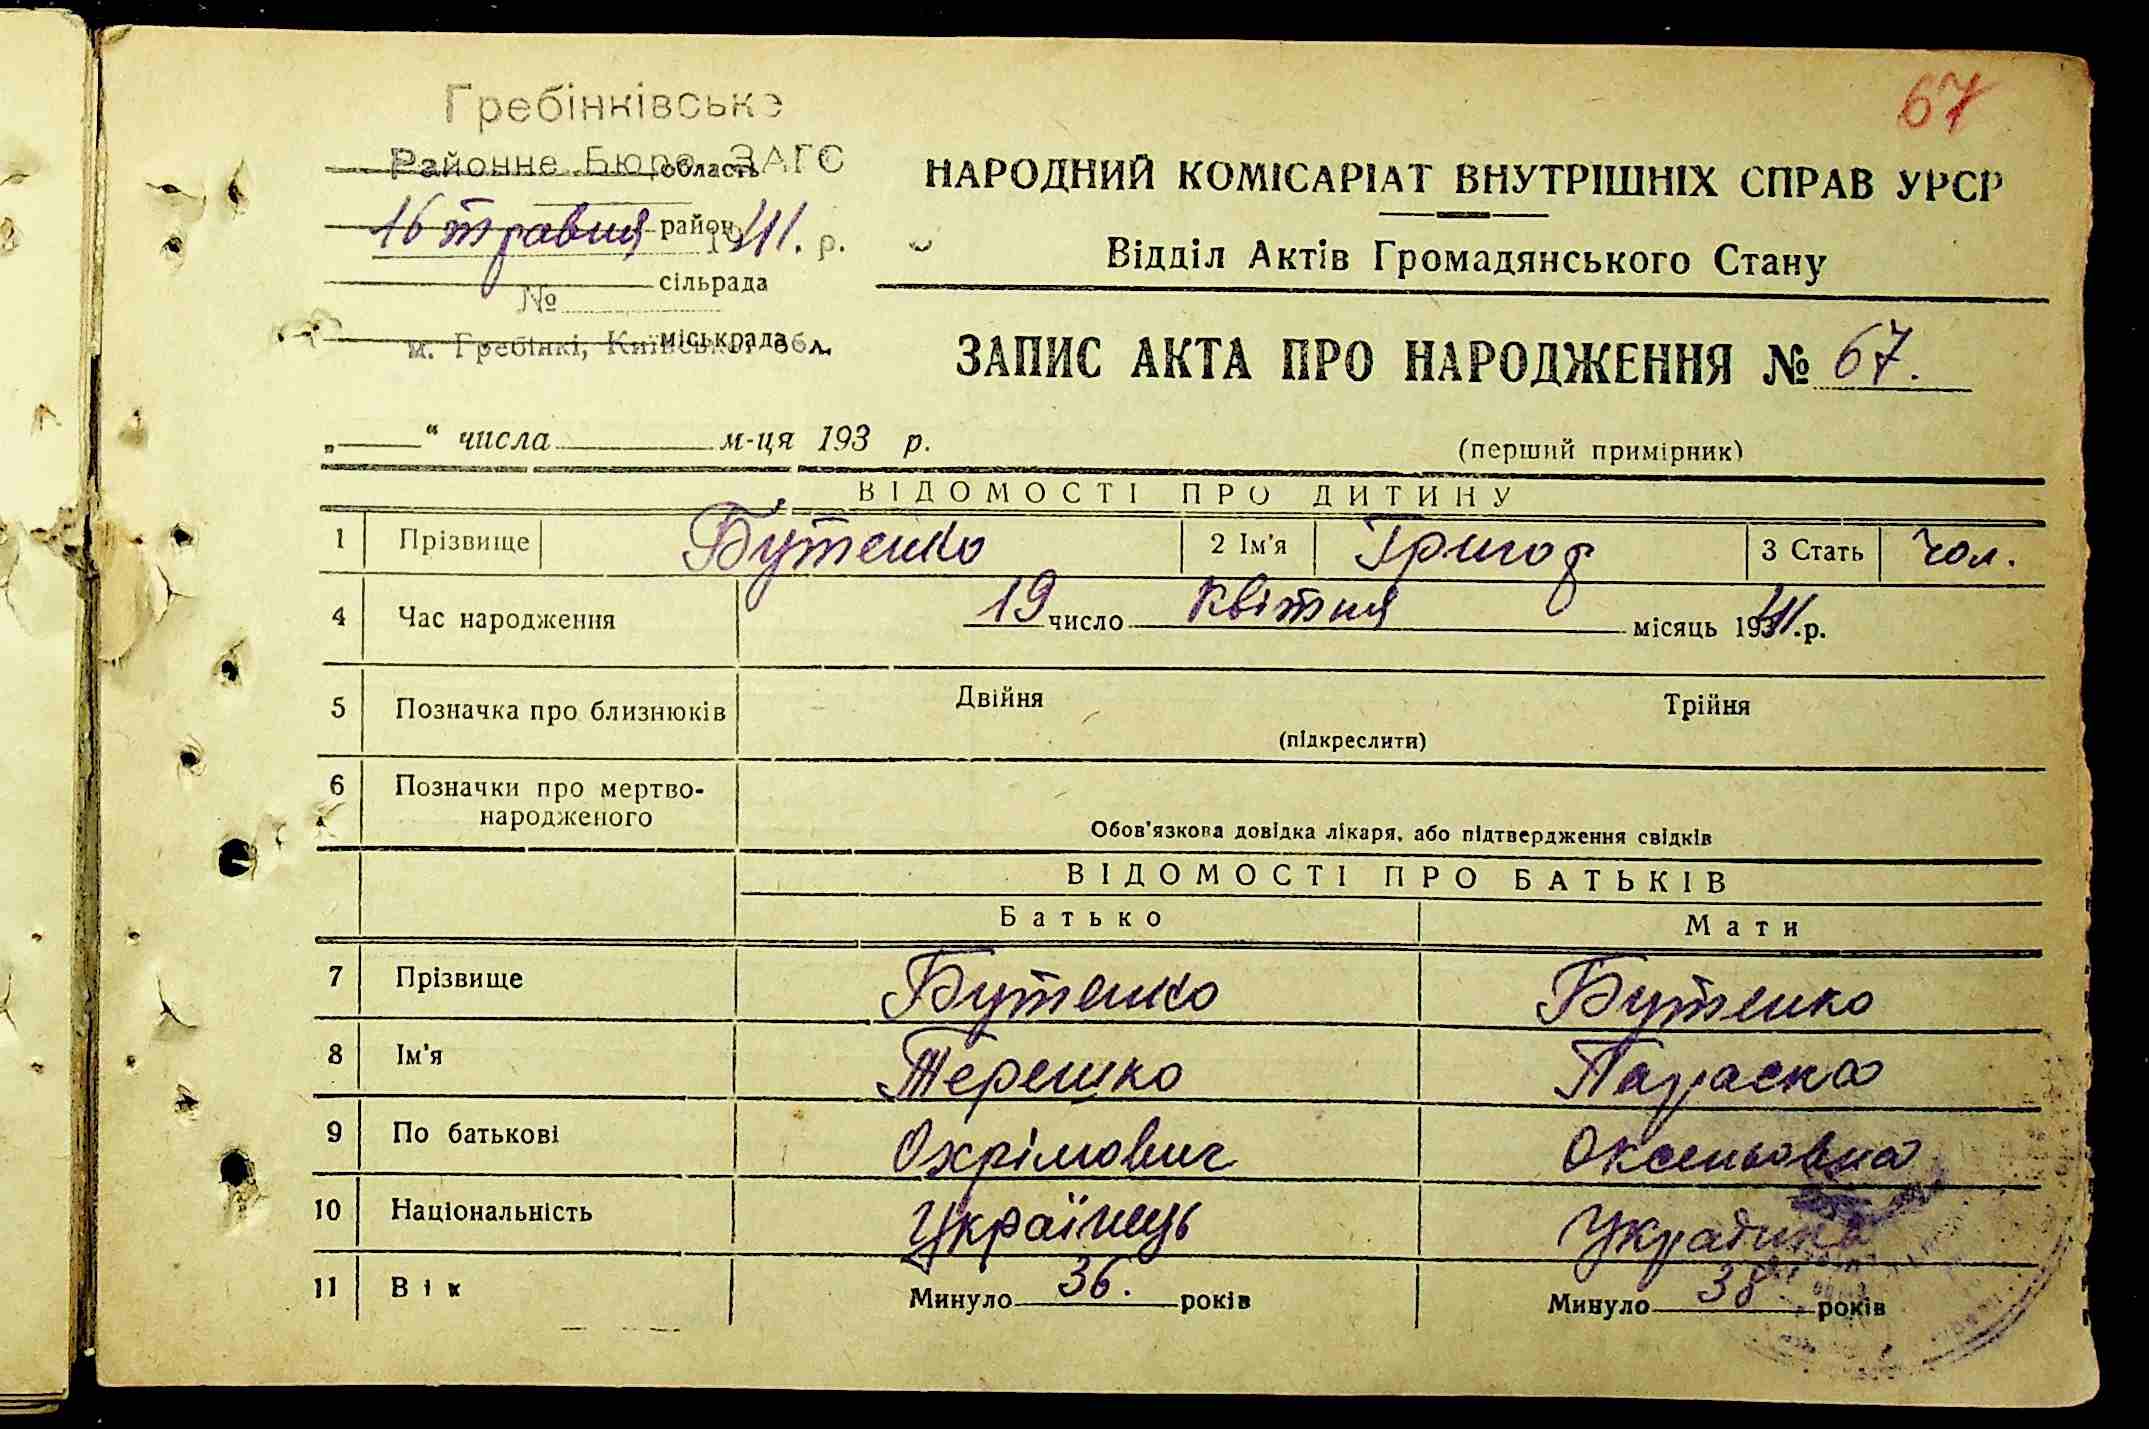 67
Гребінківське
Районне Бюро ЗАГС
область
16 травня 1941. р.
район
сільрада
№
міськрада
м. Гребінкі, Київської обл.
НАРОДНИЙ КОМІСАРІАТ ВНУТРІШНІХ СПРАВ УРСР
Відділ Актів Громадянського Стану
ЗАПИС АКТА ПРО НАРОДЖЕННЯ № 67.
„ “ числа м-ця 193 р.
(перший примірник)
ВІДОМОСТІ ПРО ДИТИНУ
1 Прізвище Бутенко 2 Ім'я Григор 3 Стать чол.
4 Час народження 19 число квітня місяць 1941.р.
5 Позначка про близнюків Двійня Трійня
(підкреслити)
6 Позначки про мертво-
народженого
Обов'язкова довідка лікаря, або підтвердження свідків
ВІДОМОСТІ ПРО БАТЬКІВ
Батько Мати
7 Прізвище Бутенко Бутенко
8 Ім'я Терешко Параска
9 По батькові Охрімович Оксеньовна
10 Національність Українець Українка
11 Вік Минуло 36. років Минуло 38 років